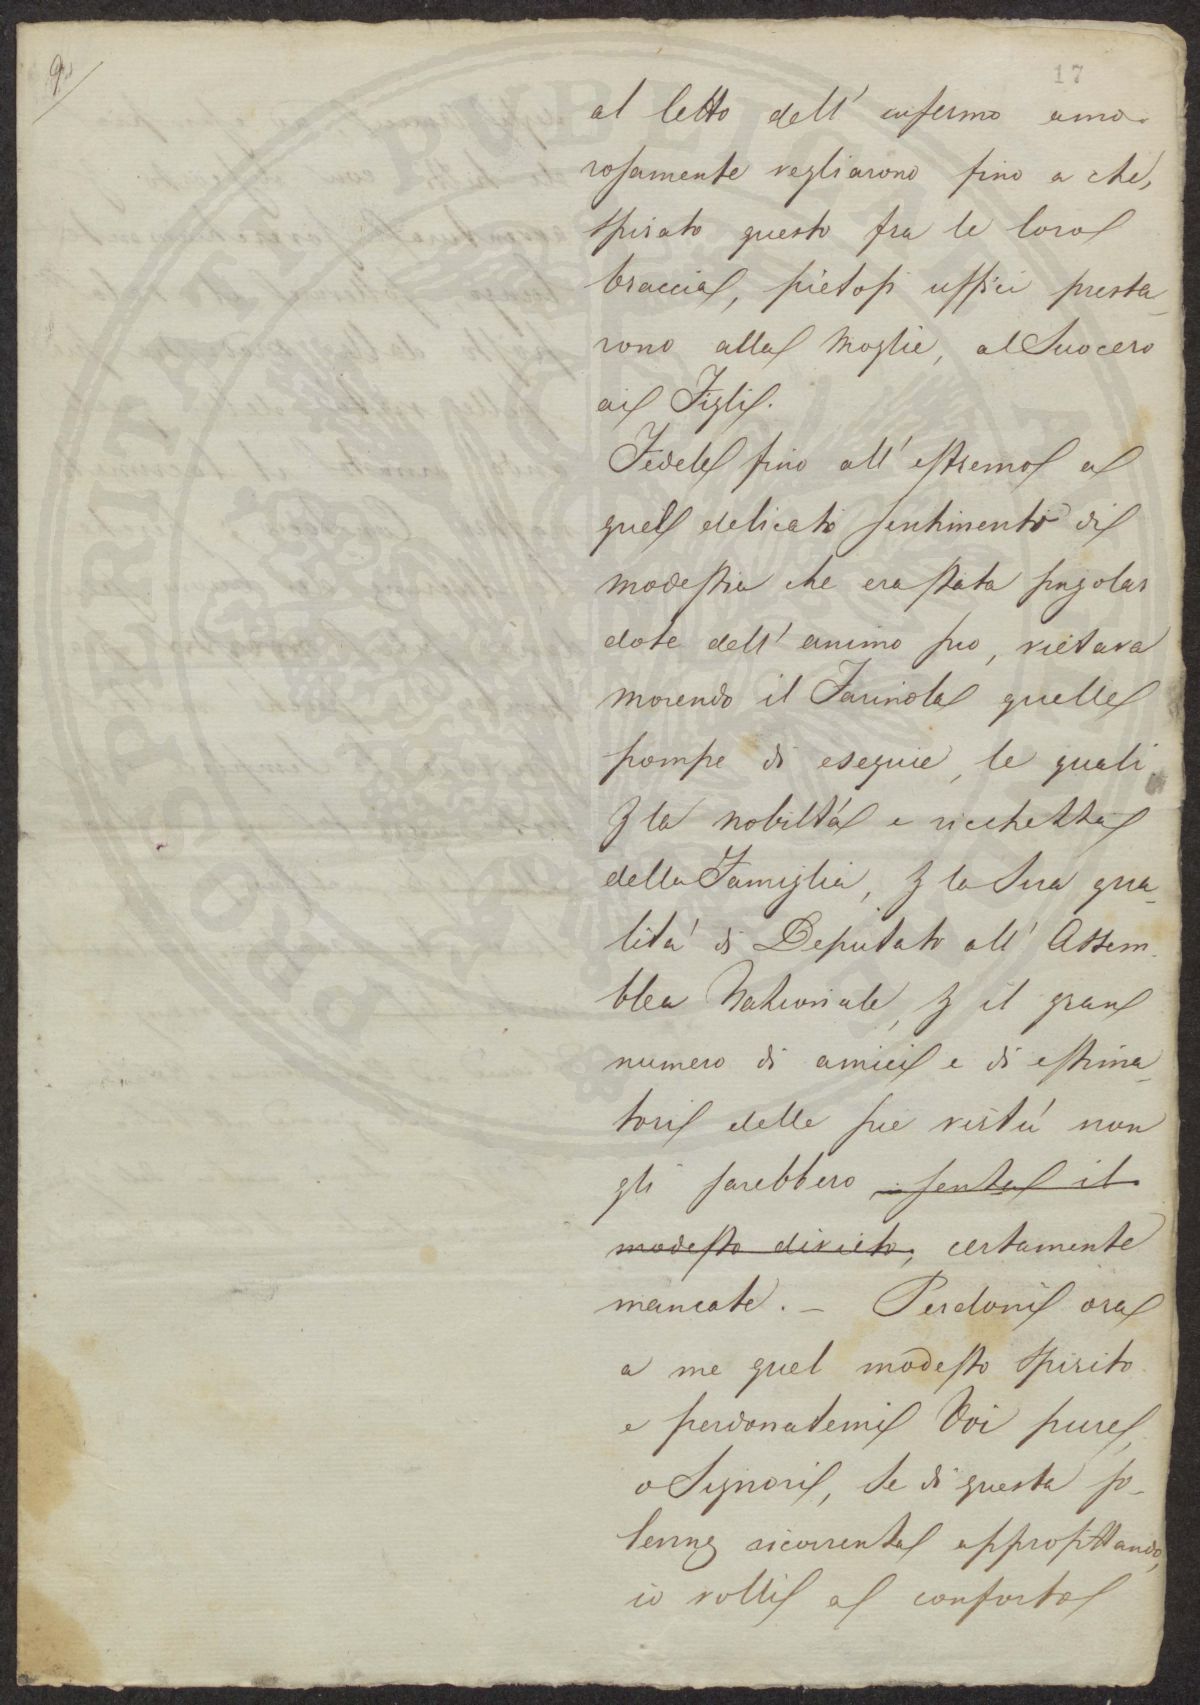 9
17
al letto dell' infermo amo-
rosamente vegliarono fino a che,
spirato questo fra le loro
braccia, pietosi ufficj presta-
rono alla Moglie, al Suocero
ai Figli.
Fedele fino all' estremo a
quel delicato sentimento di
modestia che era stata singolar
dote dell' animo suo, vietava
morendo il Farinola quelle
pompe di esequie, le quali
p la nobiltà e ricchezza
della Famiglia, p la Sua qua-
lità di Deputato all' Assem-
blea Nazionale, p il gran
numero di amici e di estima-
tori delle sue virtù non
gli sarebbero senza il
modesto divieto, certamente
mancate. — Perdoni ora
a me quel modesto Spirito
e perdonatemi Voi pure,
o Signori, se di questa so-
lenne ricorrenza approfittando,
io volli a conforto
POPVLARITATI PVBLICAE VTILITATI